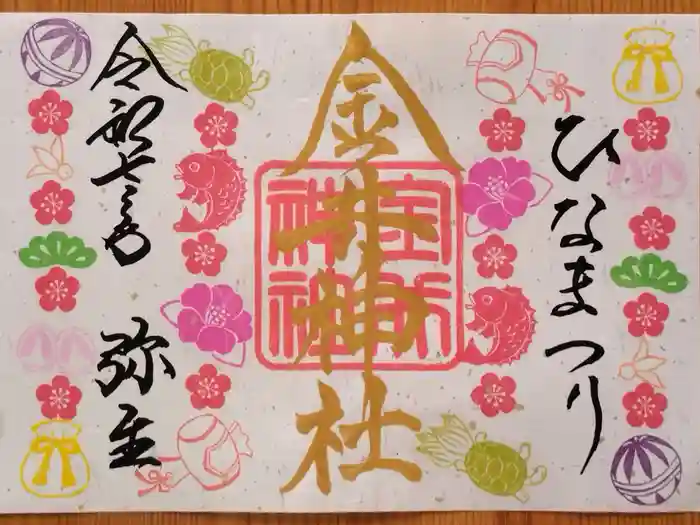 ひなまつり
金井神社
令和七年 弥生